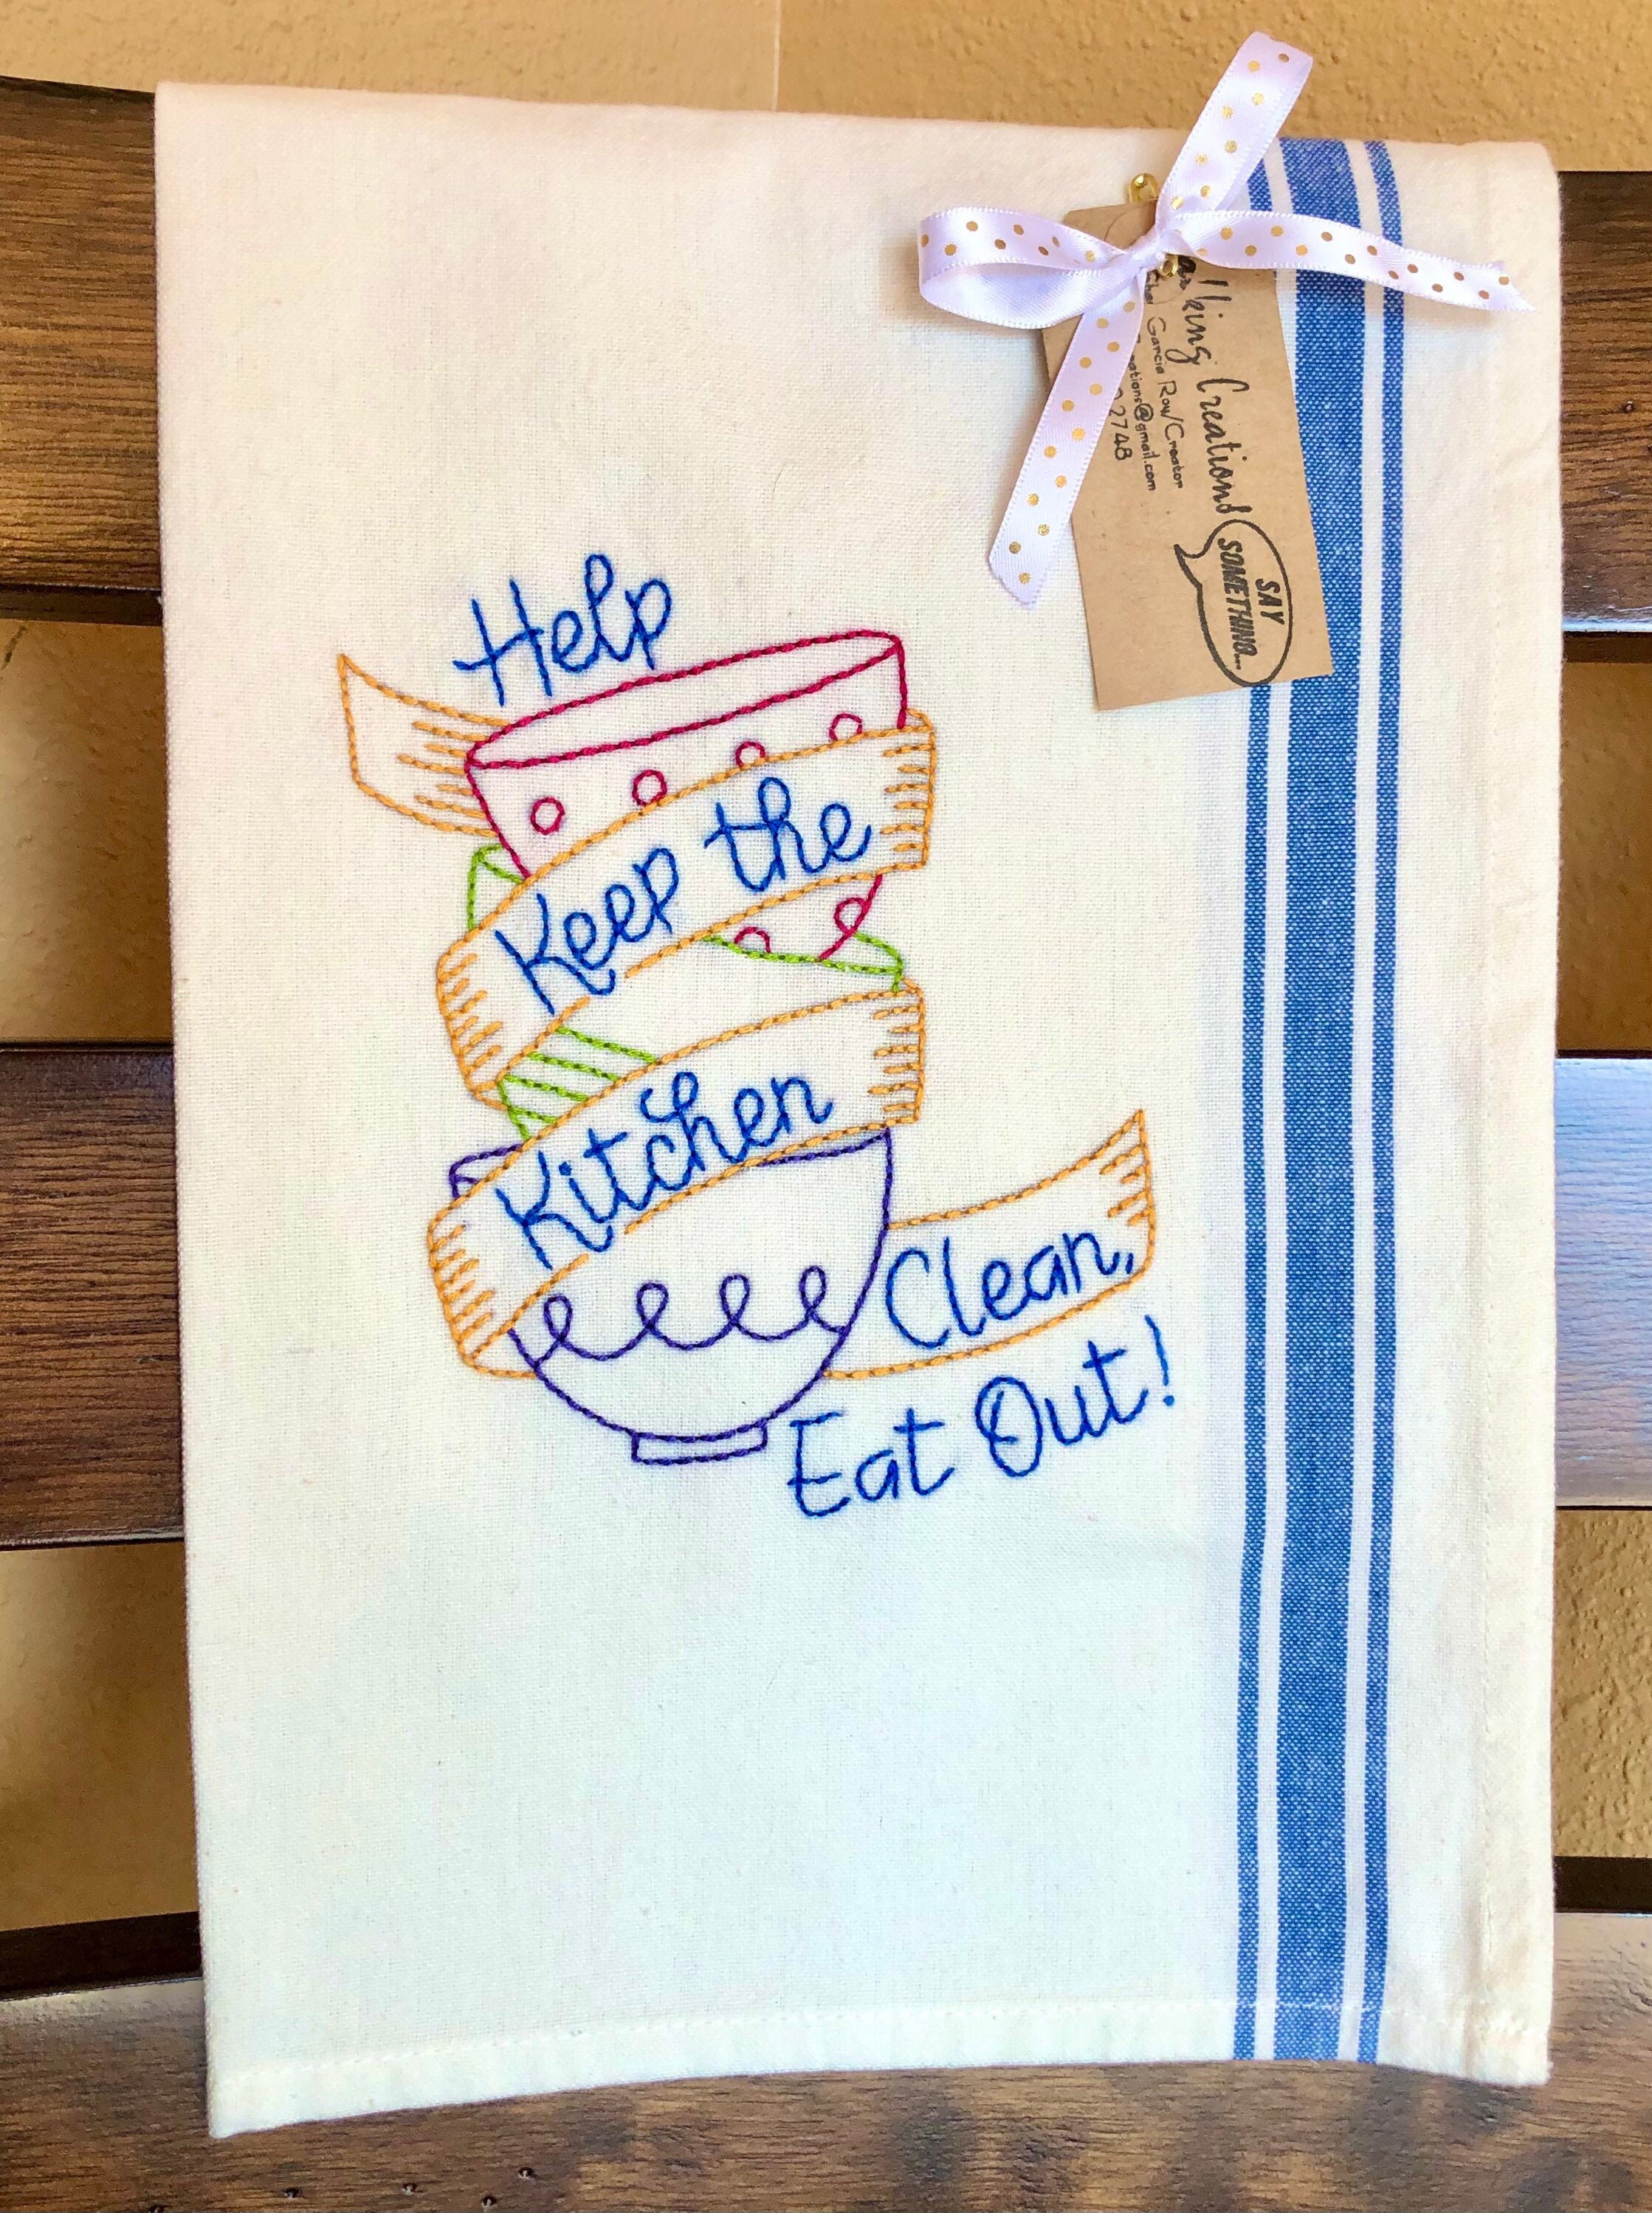 Help
Keep the
Kitchen
Clean,
Eat Out!
Creations
Garcia Row/Creator
@gmail.com
2748
SAY
SOMETHING...